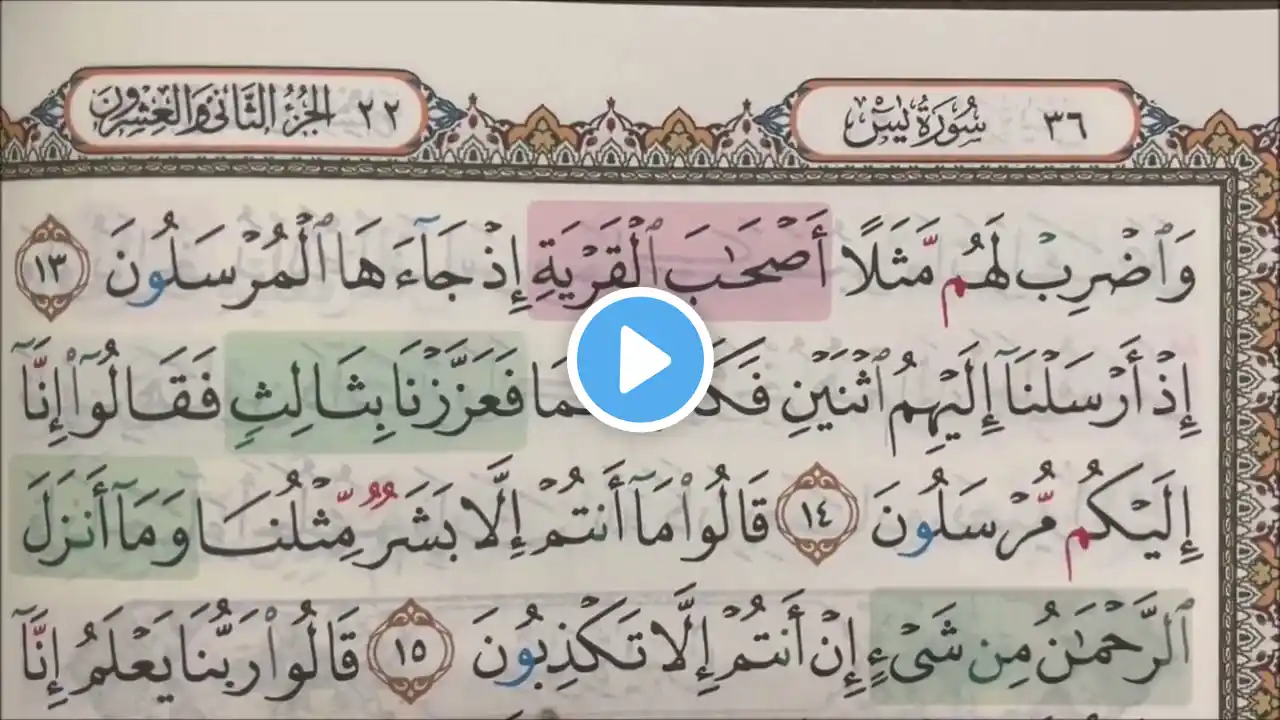 ٣٦ سُورَةُ يسٓ
٢٢ الجُزْءُ الثَّانِي وَالعِشْرُونَ
وَٱضْرِبْ لَهُم مَّثَلًا أَصْحَٰبَ ٱلْقَرْيَةِ إِذْ جَآءَهَا ٱلْمُرْسَلُونَ ١٣
إِذْ أَرْسَلْنَآ إِلَيْهِمُ ٱثْنَيْنِ فَعَزَّزْنَا بِثَالِثٍ فَقَالُوٓا۟ إِنَّآ
إِلَيْكُم مُّرْسَلُونَ ١٤ قَالُوا۟ مَآ أَنتُمْ إِلَّا بَشَرٌ مِّثْلُنَا وَمَآ أَنزَلَ
ٱلرَّحْمَٰنُ مِن شَىْءٍ إِنْ أَنتُمْ إِلَّا تَكْذِبُونَ ١٥ قَالُوا۟ رَبُّنَا يَعْلَمُ إِنَّآ